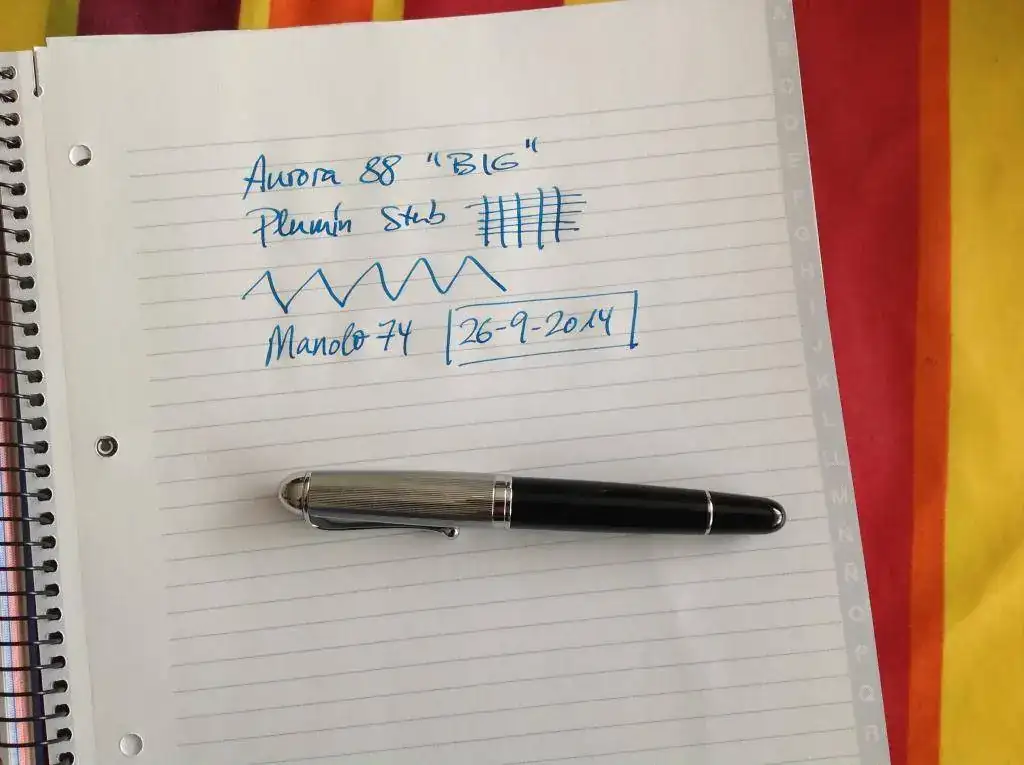 Aurora 88 "BIG"
Plumín Stub
Manolo 74 26-9-2014
A
B
C
D
E
F
G
H
I
J
K
L
LL
M
N
Ñ
O
P
Q
R